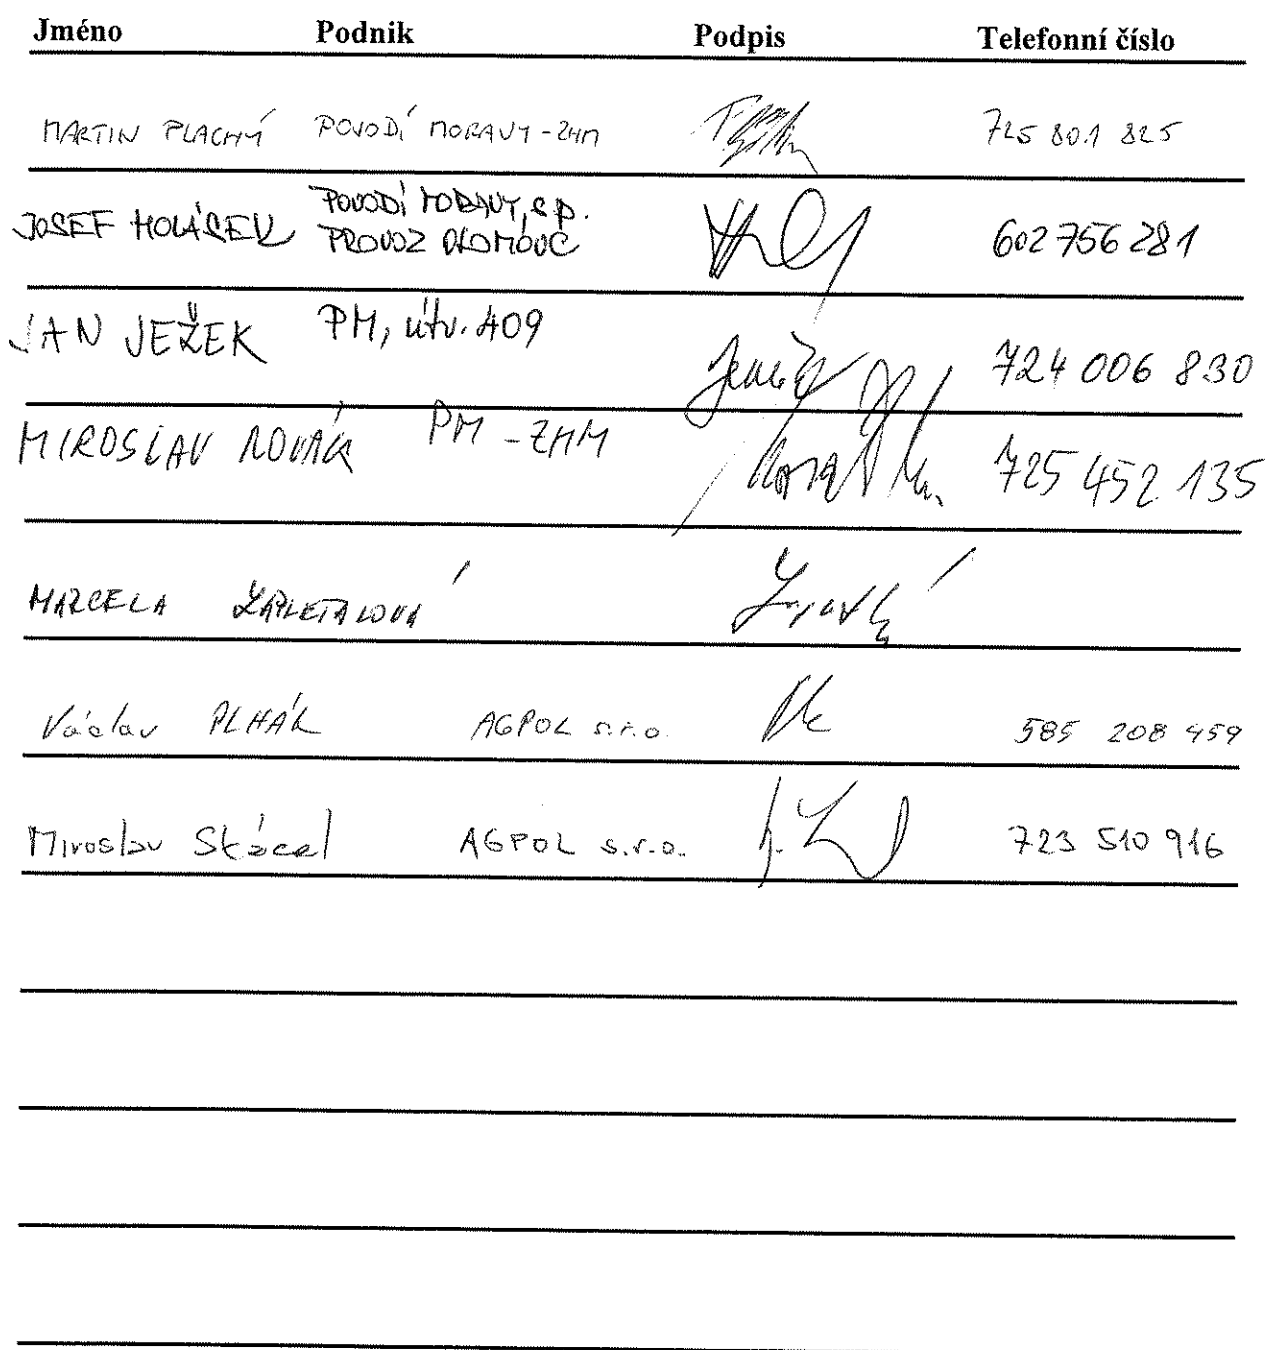 Jméno Podnik Podpis Telefonní číslo
MARTIN PLACHÝ POVODÍ MORAVY - ZHM 725 801 825
JOSEF HOLÁSEK POVODÍ MORAVY, s.p. PROVOZ OLOMOUC 602 756 281
JAN JEŽEK PM, útv. 409 724 006 830
MIROSLAV NOVÁK PM - ZHM 725 452 135
MARCELA ZAPLETALOVÁ
Václav PLHÁK AGPOL s.r.o. 585 208 459
Miroslav Stácel AGPOL s.r.o. 723 510 916